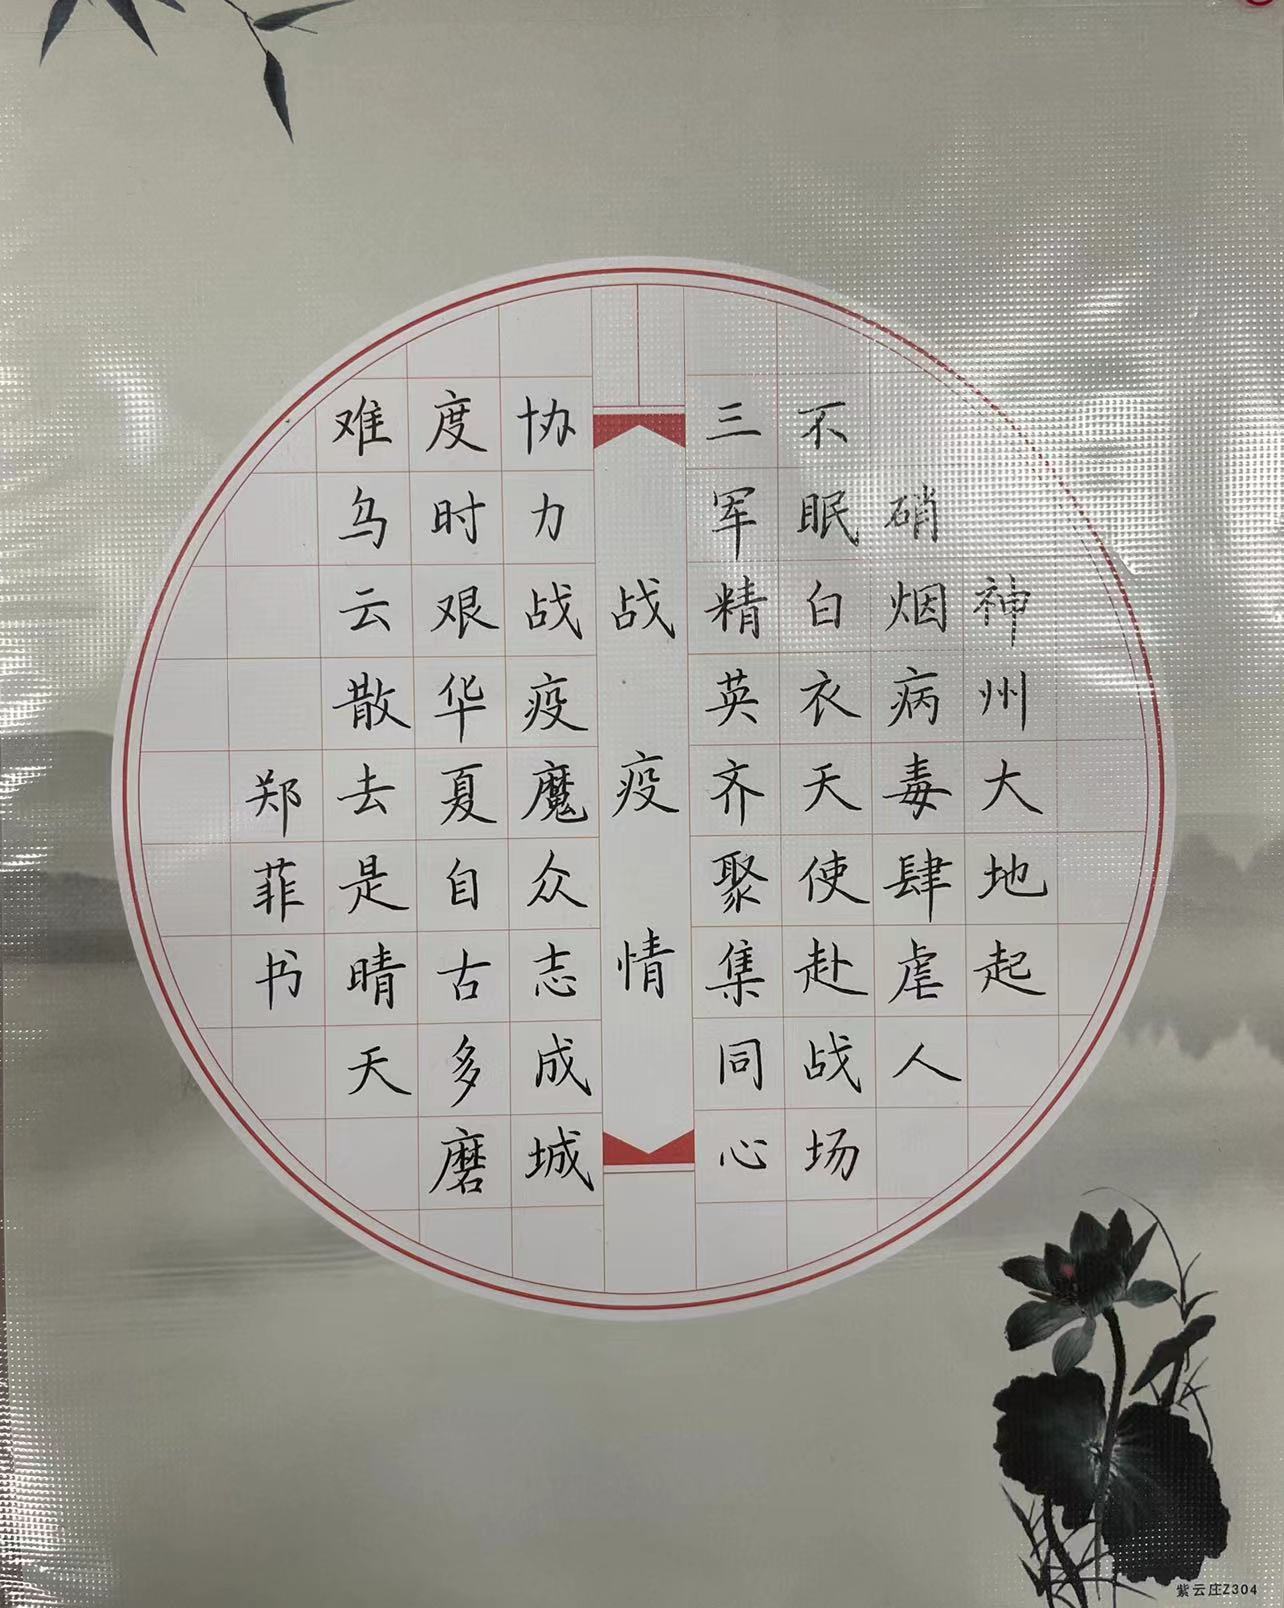 神州大地起
硝烟病毒肆虐人
不眠白衣天使赴战场
三军精英齐聚集同心
战疫情
协力战疫魔众志成城
度时艰华夏自古多磨
难乌云散去是晴天
郑菲书
紫云庄Z304